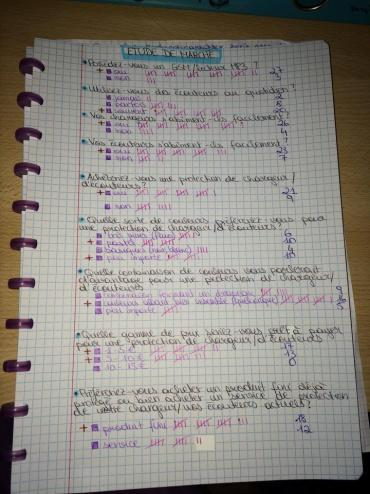 ETUDE DE MARCHÉ
Possédez-vous un GSM/lecteur MP3 ?
+ oui 27
non 3
Utilisez-vous des écouteurs au quotidien ?
jamais 2
parfois 8
+ souvent 20
Vos chargeurs s'abîment-ils facilement ?
+ oui 26
non 4
Vos écouteurs s'abîment-ils facilement ?
+ oui 23
non 7
Achèteriez-vous une protection de chargeur/
d'écouteurs ?
+ oui 21
non 9
Quelle sorte de couleurs préférez-vous pour
une protection de chargeur/d'écouteurs ?
très vives (fluo) 6
+ pastel 10
basiques (noir, blanc) 4
+ peu importe 10
Quelle combinaison de couleurs vous plairait
d'avantage pour une protection de chargeurs/
d'écouteurs
combinaison formant un 9
+ couleurs allant bien ensemble
peu importe 5
Quelle gamme de prix seriez-vous prêt à payer
pour une protection de chargeur/d'écouteurs
+ 1-5€ 17
+ 5-10€ 13
10-15€ 0
Préférez-vous acheter un produit fini déjà
protégé ou bien acheter un service de protection
de votre chargeur/vos écouteurs actuels ?
+ produit fini 18
service 12